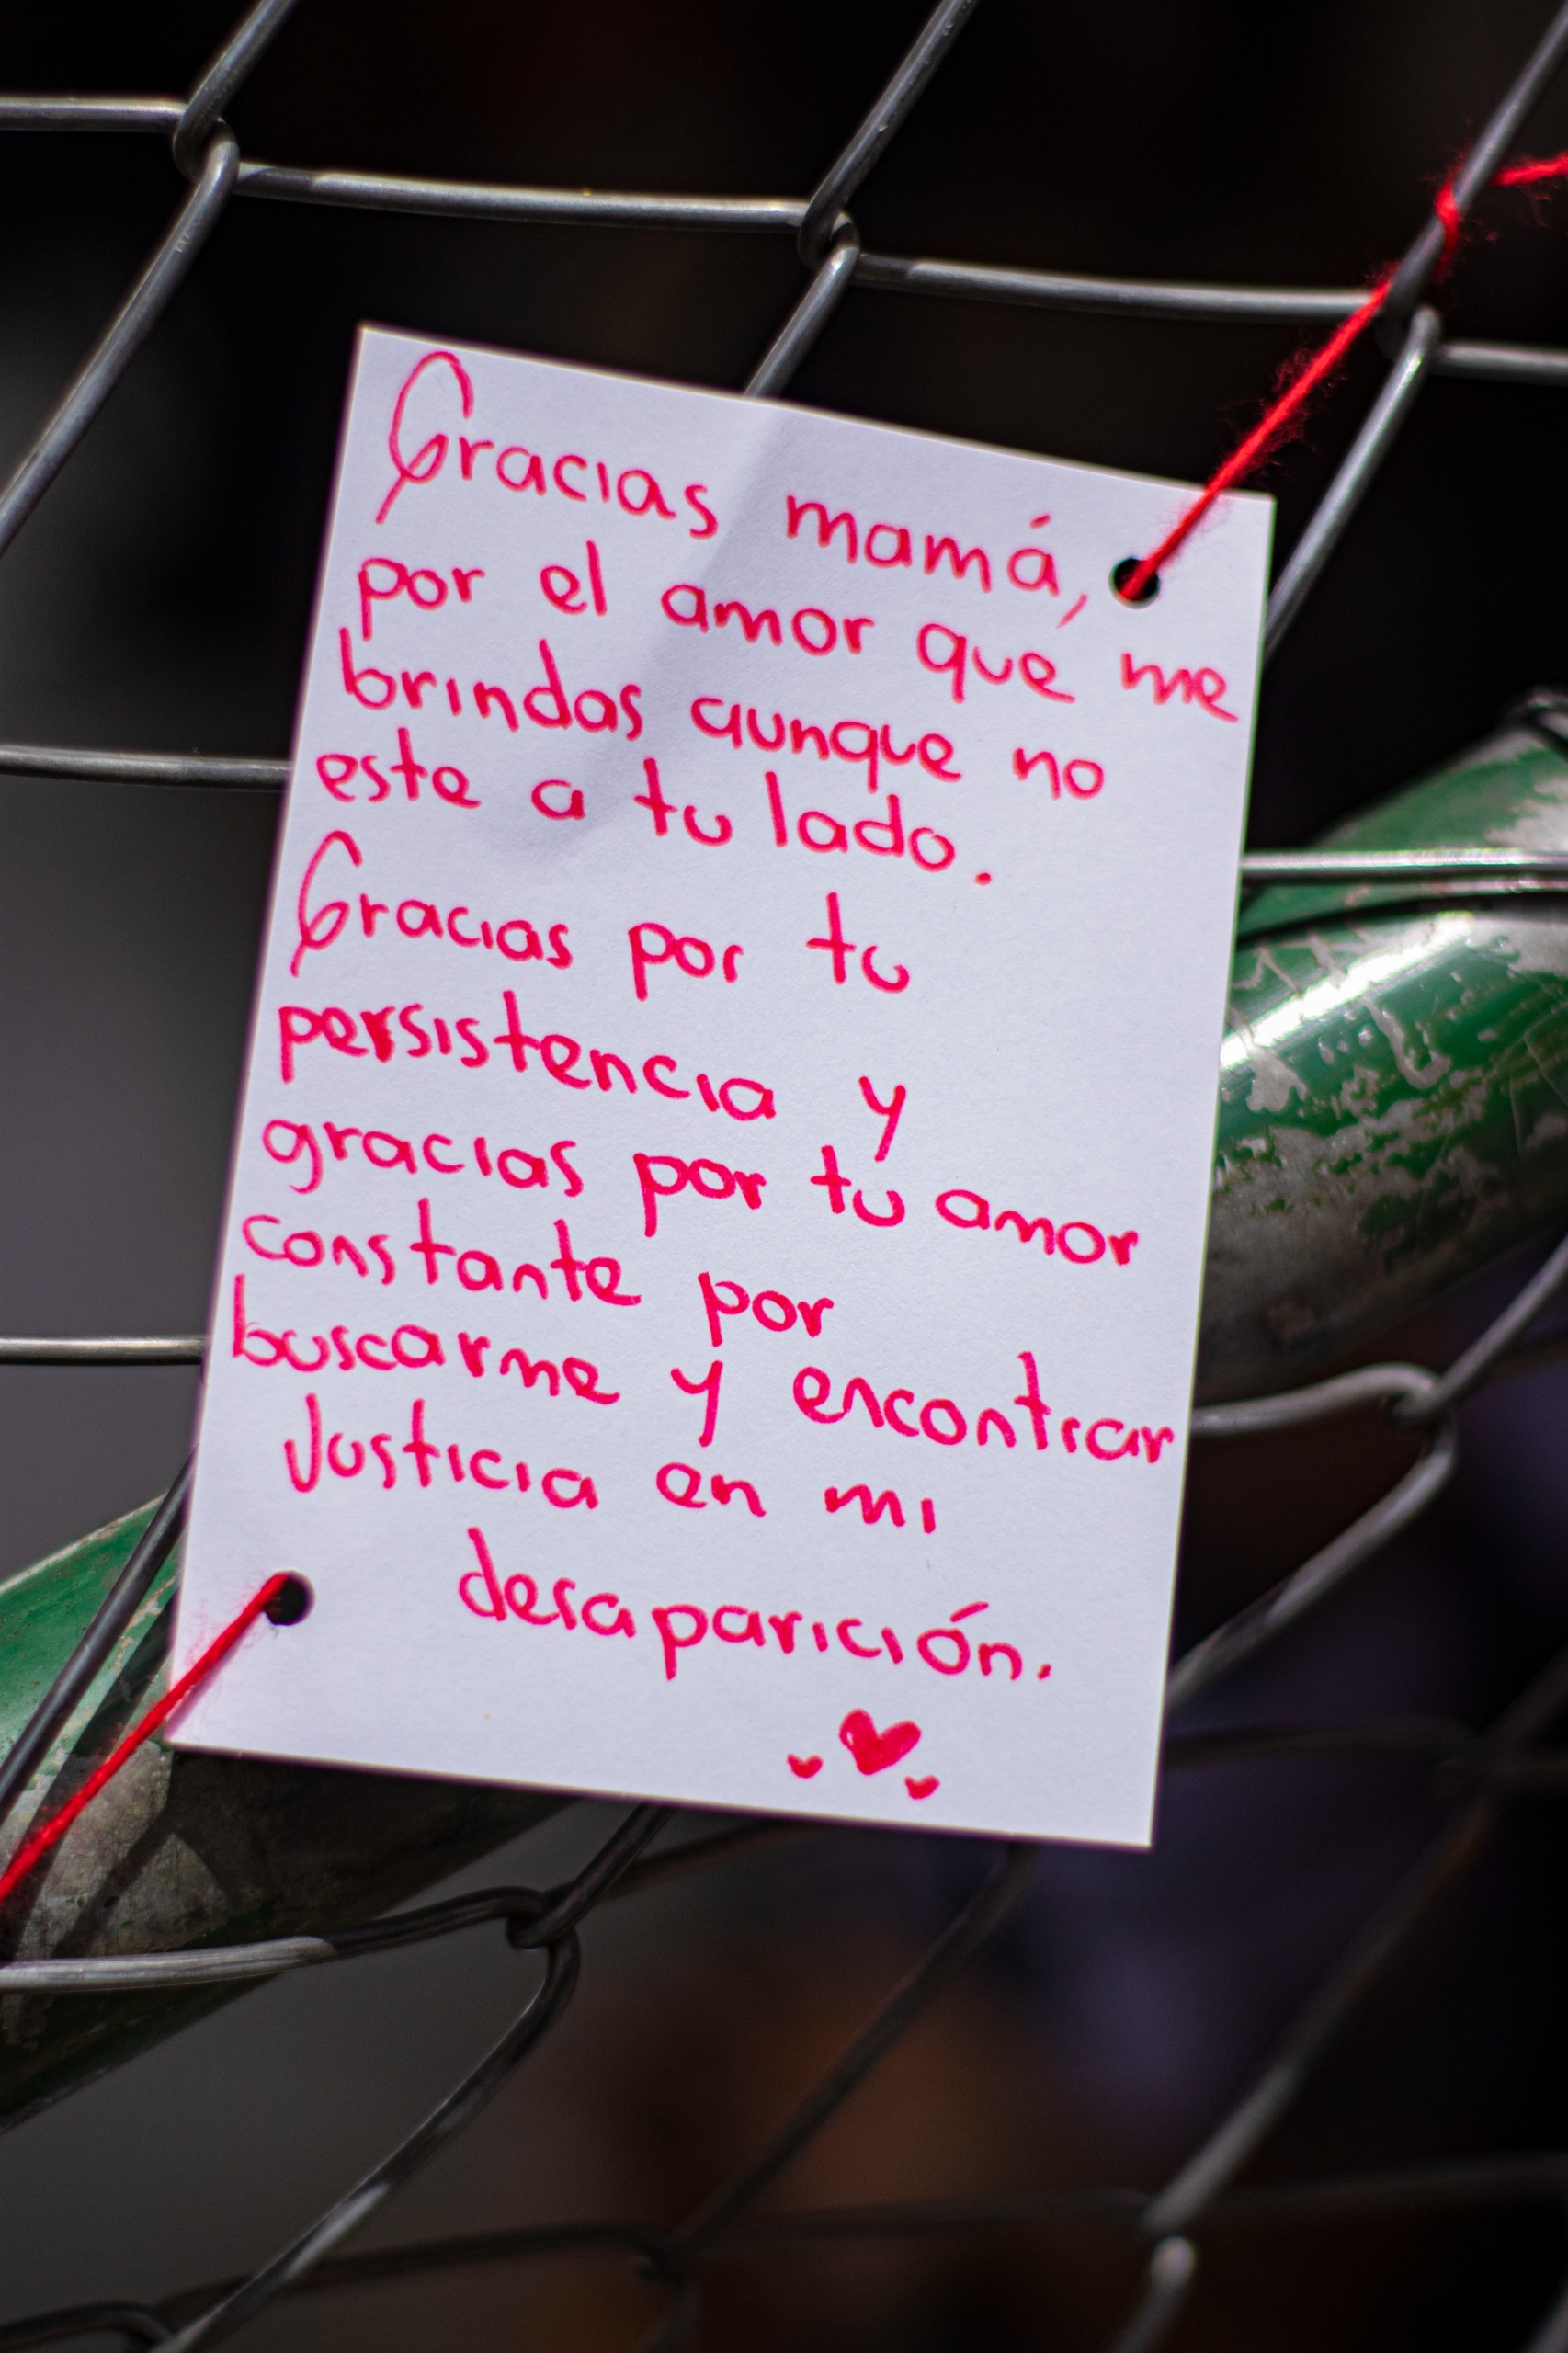 Gracias mamá,
por el amor que me
brindas aunque no
este a tu lado.
Gracias por tu
persistencia y
gracias por tu amor
constante por
buscarme y encontrar
Justicia en mi
desaparición.